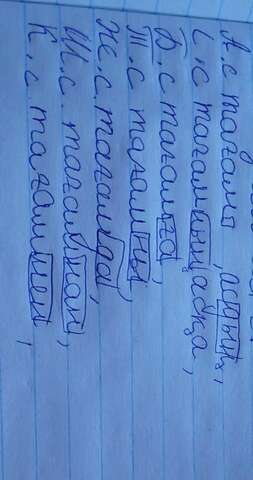 А.с тағам,
І.с тағамның асқа,
Б.с тағамға,
Т.с тағамны,
Ж.с. тағамда,
Ш.с. тағамнан,
К.с тағаммен,